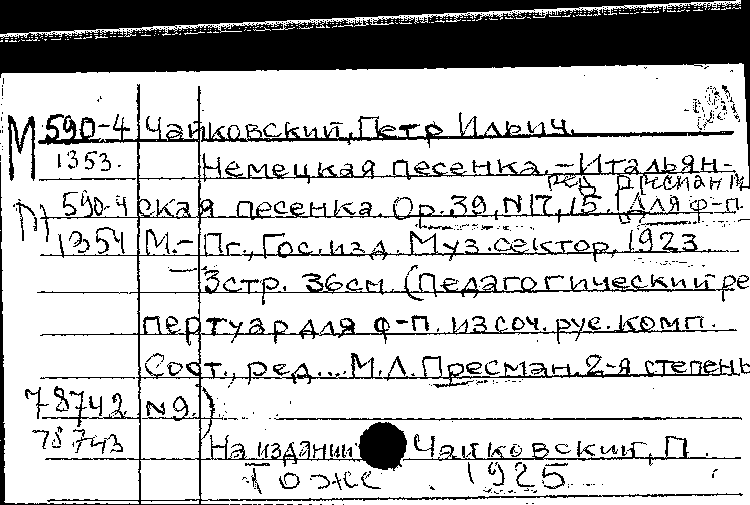 М 590-4 Чайковский, Петр Ильич.
1353. Немецкая песенка. – Итальян-
ред Пресман М.
М 590-4 ская песенка. Op. 39, N17, 15. [Для ф-п.
1354 М.– Пг., Гос. изд. Муз. сектор, 1923.
3 стр. 36 см. (Педагогический ре
пертуар для ф-п. из соч. рус. комп.
Сост., ред... М.Л. Пресман. 2-я степень
78742 N9.)
78743 На издании: Чайковский, П.
То же. 1925